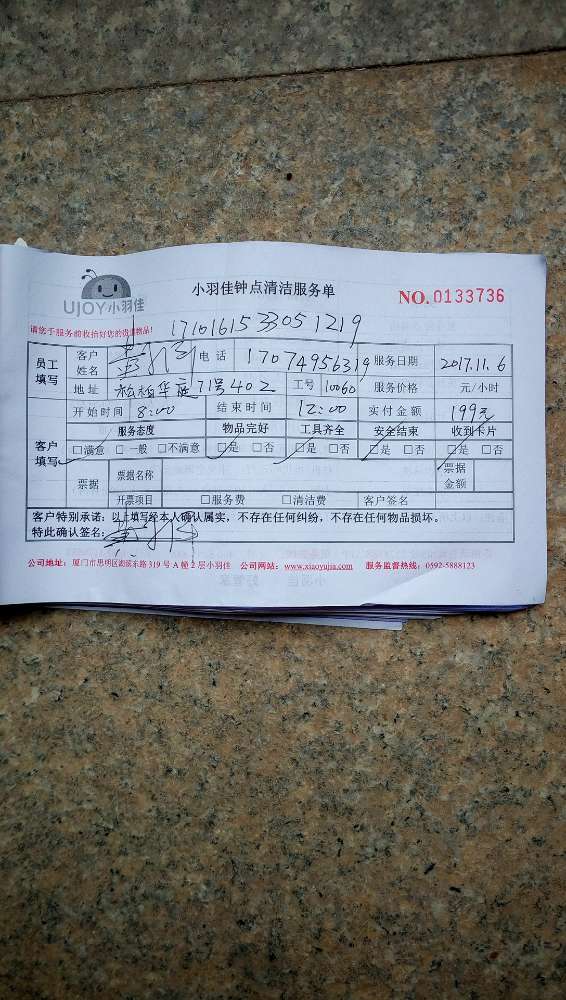 UJOY小羽佳
小羽佳钟点清洁服务单
NO.0133736
请您于服务前收拾好您的贵重物品!
1710161533051219
员工填写 客户姓名 电话 17074956319 服务日期 2017.11.6
地址 松柏华庭71号402 工号 10060 服务价格 元/小时
开始时间 8:00 结束时间 12:00 实付金额 199元
客户填写 服务态度 物品完好 工具齐全 安全结束 收到卡片
□满意 □一般 □不满意 □是 □否 □是 □否 □是 □否 □是 □否
票据 票据名称 票据金额
开票项目 □服务费 □清洁费 客户签名
客户特别承诺:以上填写经本人确认属实,不存在任何纠纷,不存在任何物品损坏。
特此确认签名:
公司地址:厦门市思明区湖滨东路319号A幢2层小羽佳 公司网站:www.xiaoyujia.com 服务监督热线:0592-5888123